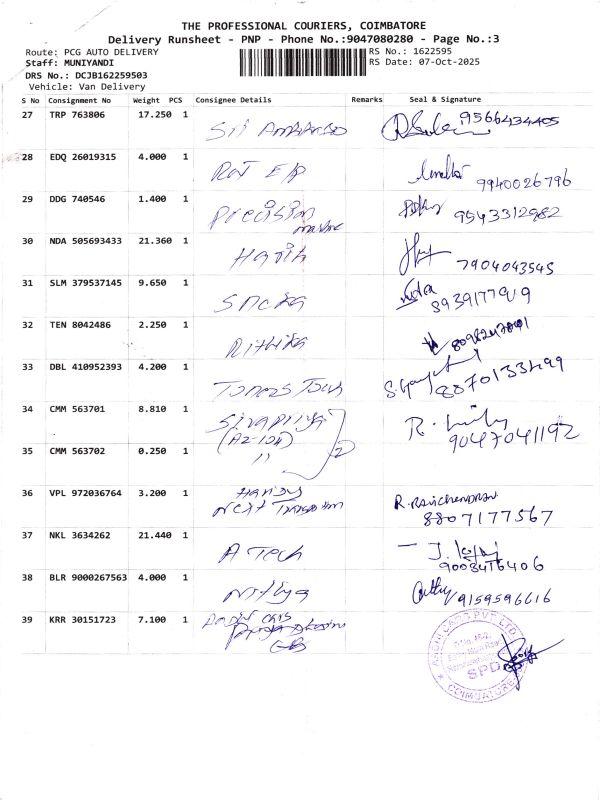 THE PROFESSIONAL COURIERS, COIMBATORE
Delivery Runsheet - PNP - Phone No.:9047080280 - Page No.:3
Route: PCG AUTO DELIVERY RS No.: 1622595
Staff: MUNIYANDI RS Date: 07-Oct-2025
DRS No.: DCJB162259503
Vehicle: Van Delivery
S No Consignment No Weight PCS Consignee Details Remarks Seal & Signature
27 TRP 763806 17.250 1 Sri 9566434405
28 EDQ 26019315 4.000 1 9940026796
29 DDG 740546 1.400 1 Precision 9543312982
30 NDA 505693433 21.360 1 Harih 7904043545
31 SLM 379537145 9.650 1 Sneha
32 TEN 8042486 2.250 1 Rithika
33 DBL 410952393 4.200 1 8870133499
34 CMM 563701 8.810 1 Sivapriya 9047041192
35 CMM 563702 0.250 1 " 2
36 VPL 972036764 3.200 1 R. Ravichendran
8807177567
37 NKL 3634262 21.440 1 A Tech
9003416406
38 BLR 9000267563 4.000 1 Nithya 9159596616
39 KRR 30151723 7.100 1
SPD
COIMBATORE